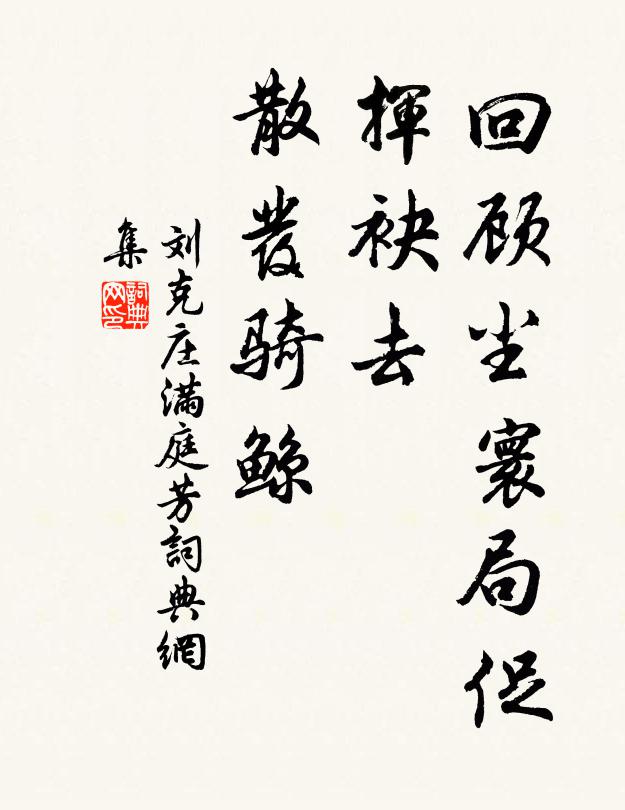 回顾尘寰局促
揮袂去
散發骑鲸
刘克庄满庭芳詞典網
集
詞典网印